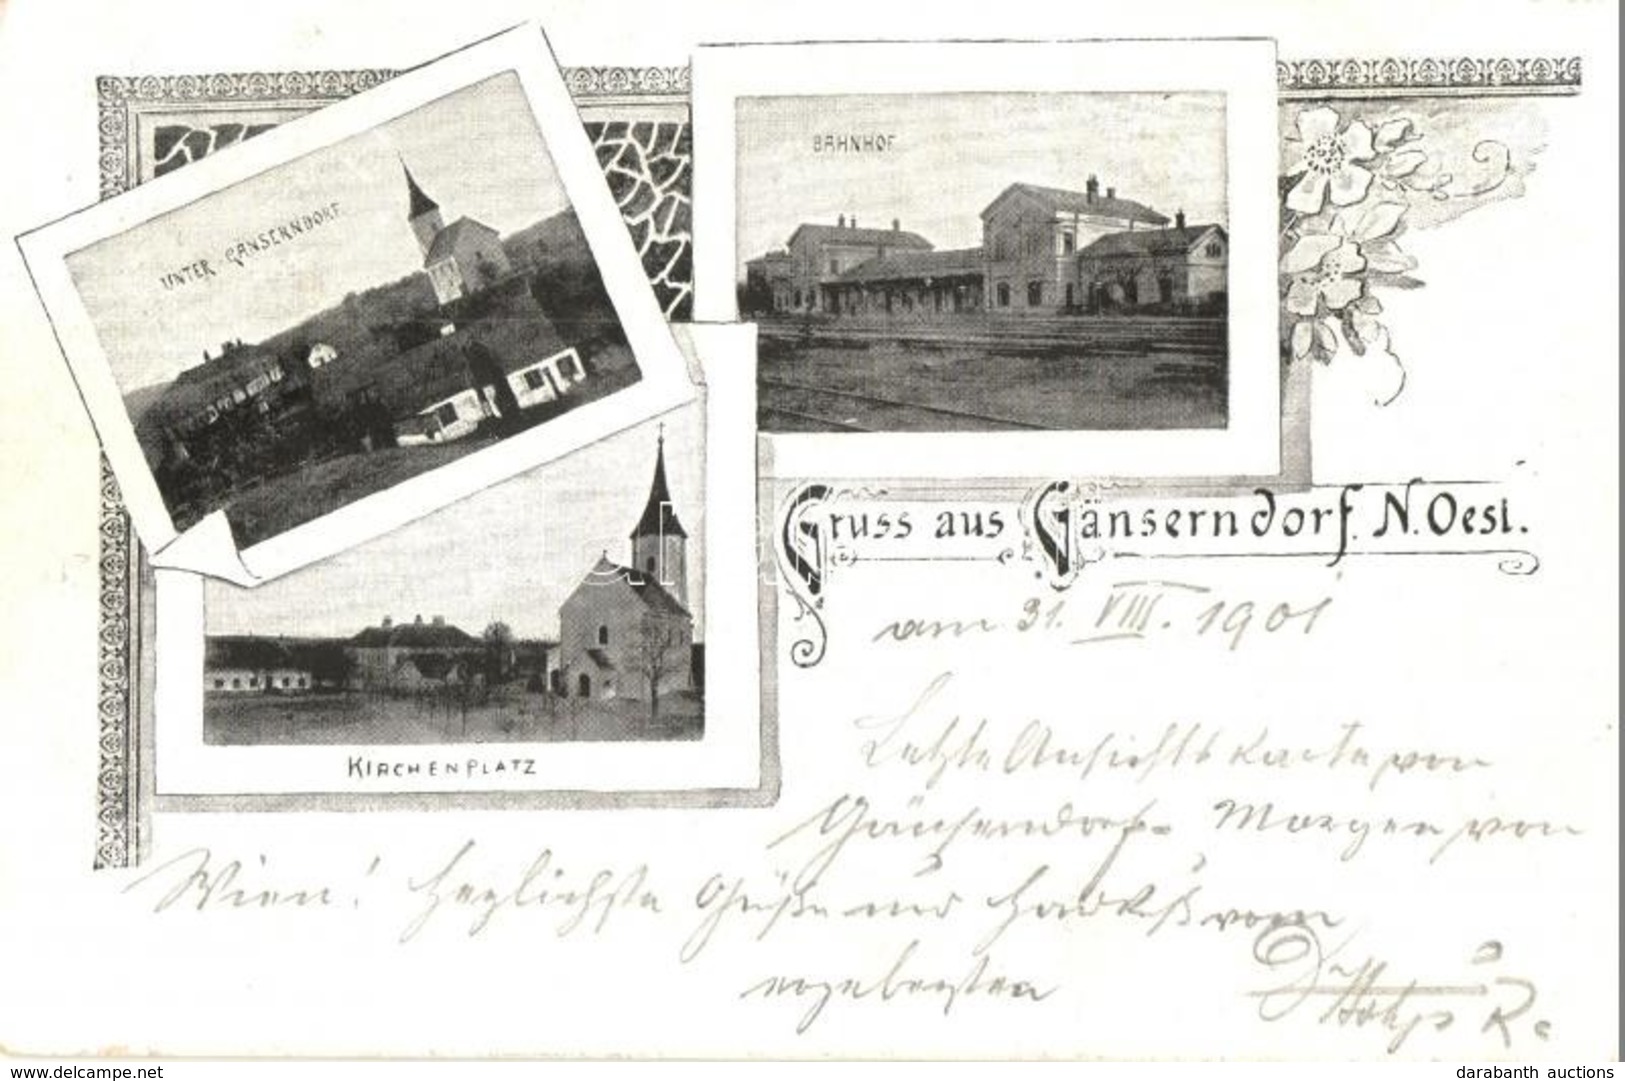 BAHNHOF
UNTER GÄNSERNDORF
Gruss aus Gänserndorf. N. Oest.
am 31. VIII. 1901
Letzte Ansichtskarte von
Gänserndorf. Morgen von
KIRCHENPLATZ
Wien! Herzlichste Grüße und Handkuß vom
ergebensten
delcampe.net
darabanth auctions